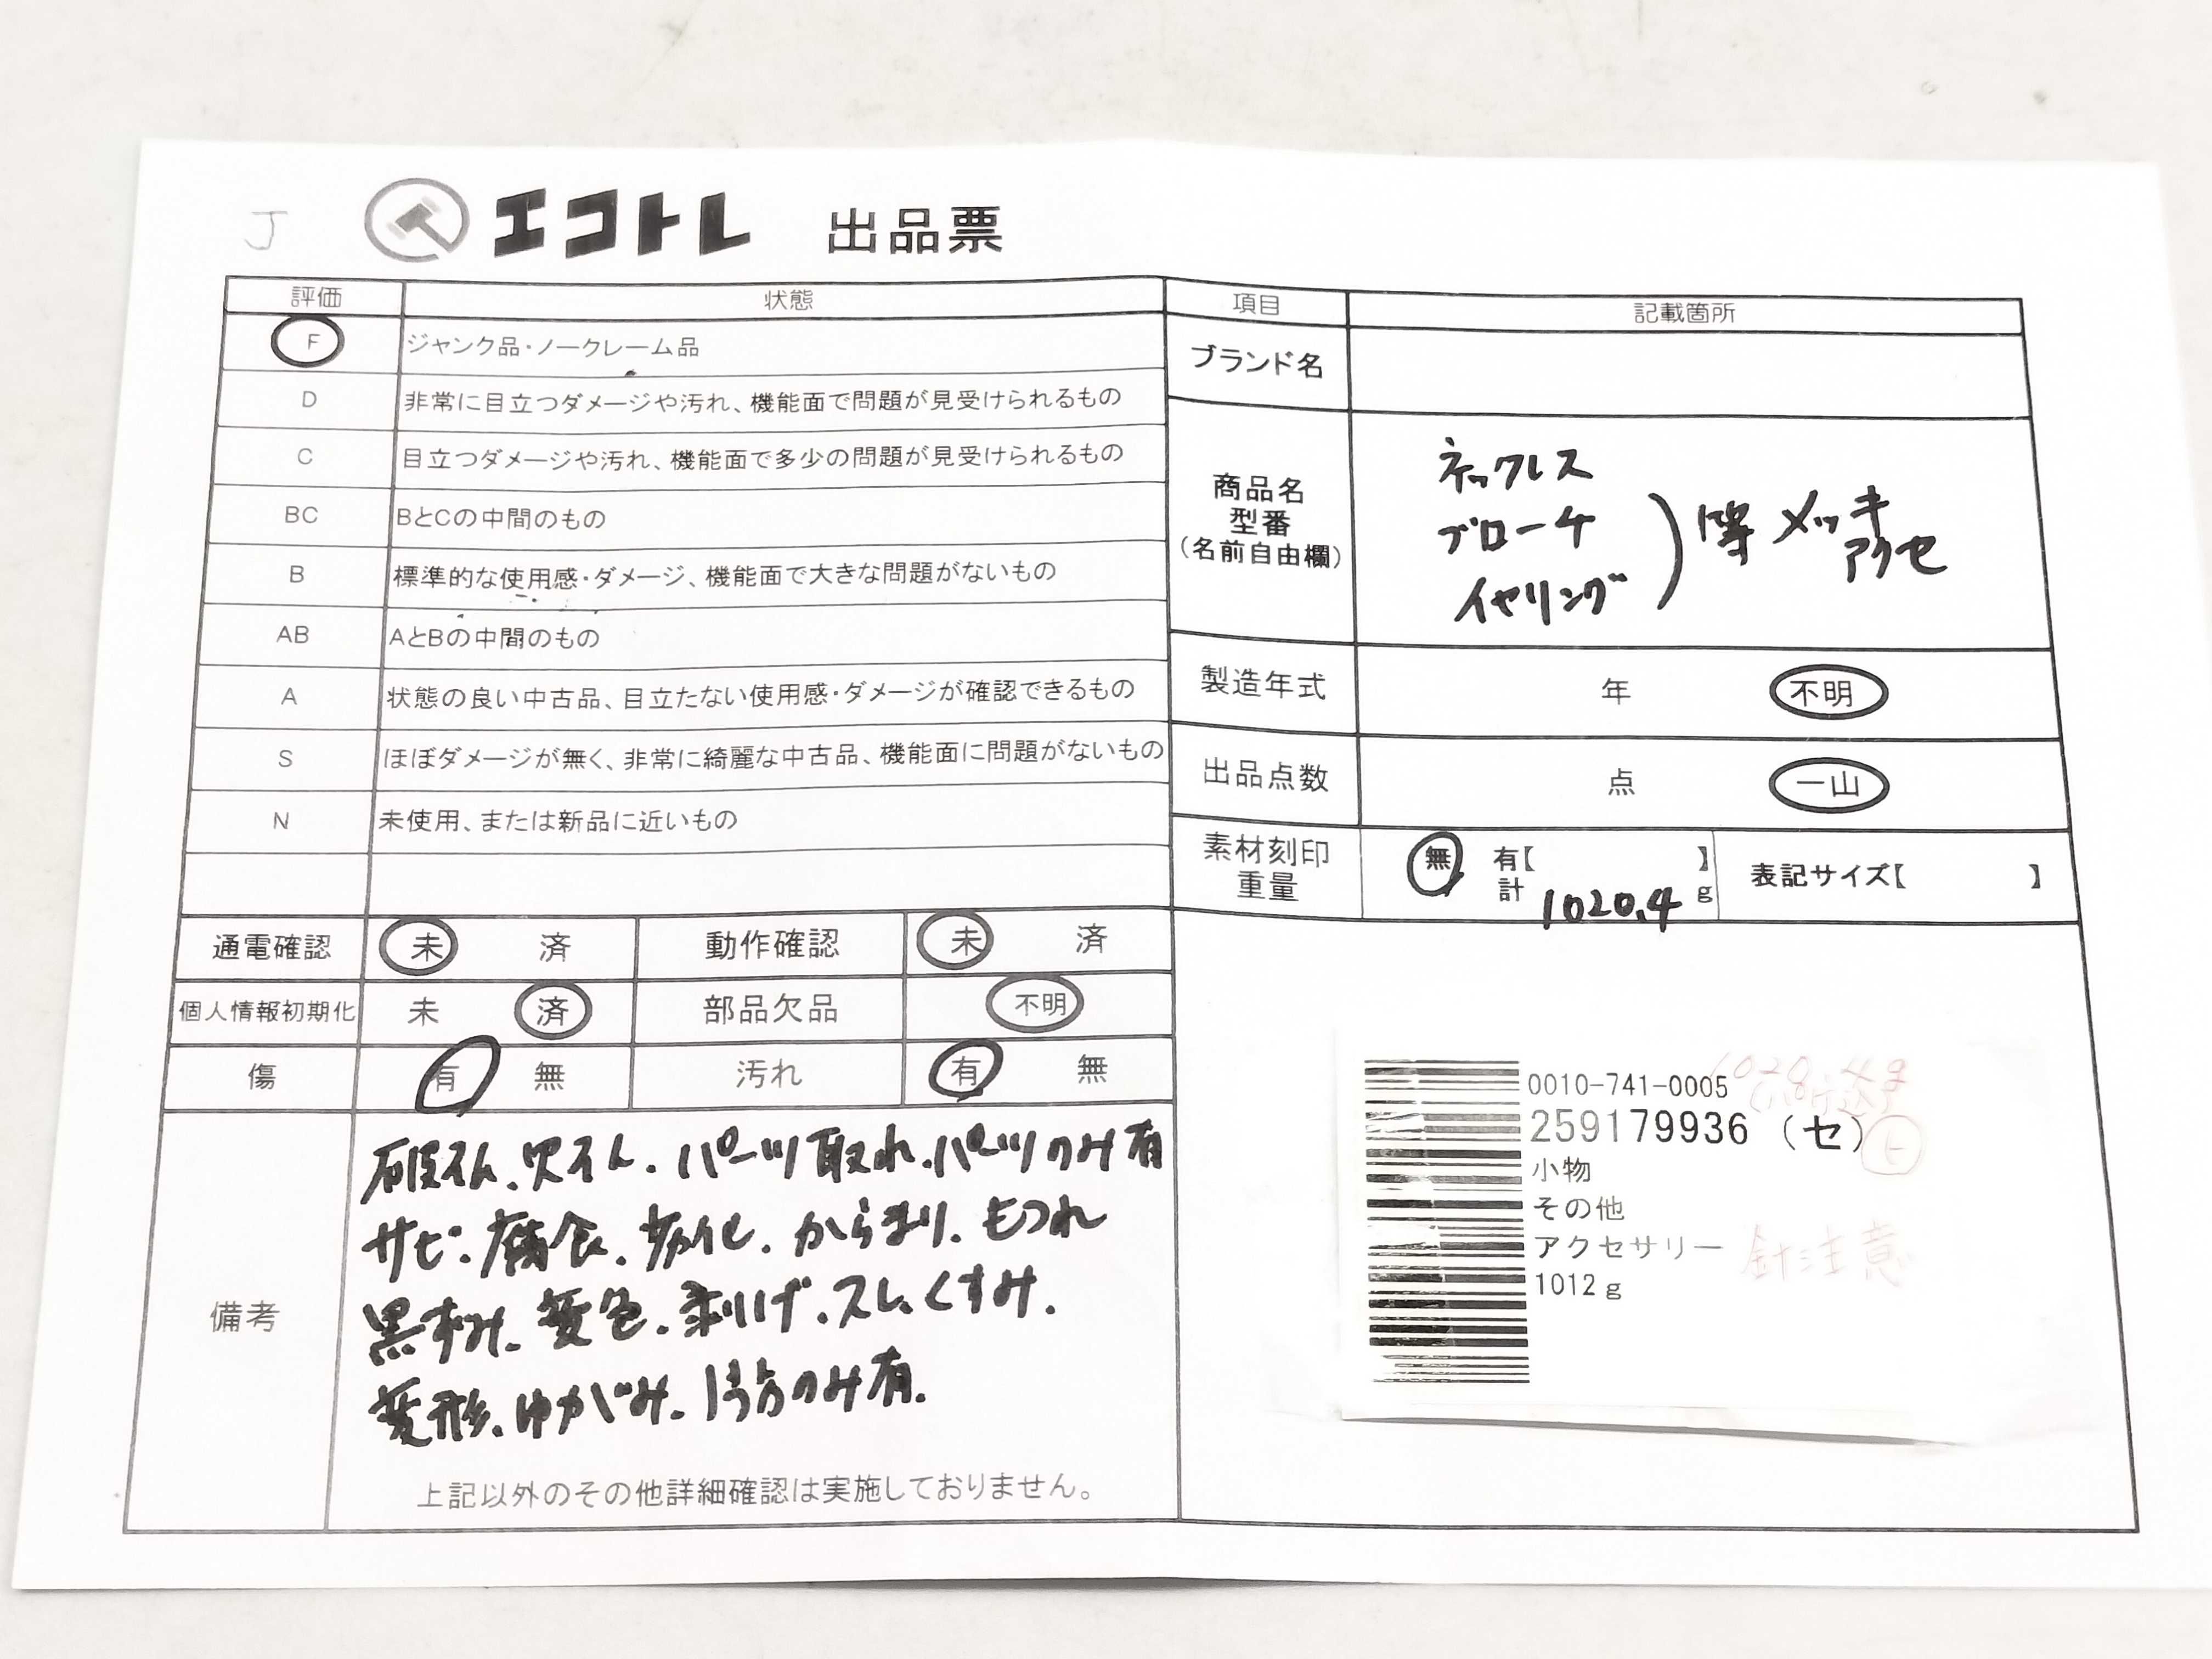 J
エコトレ 出品票
評価 状態
F ジャンク品・ノークレーム品
D 非常に目立つダメージや汚れ、機能面で問題が見受けられるもの
C 目立つダメージや汚れ、機能面で多少の問題が見受けられるもの
BC BとCの中間のもの
B 標準的な使用感・ダメージ、機能面で大きな問題がないもの
AB AとBの中間のもの
A 状態の良い中古品、目立たない使用感・ダメージが確認できるもの
S ほぼダメージが無く、非常に綺麗な中古品、機能面に問題がないもの
N 未使用、または新品に近いもの
通電確認 未 済 動作確認 未 済
個人情報初期化 未 済 部品欠品 不明
傷 有 無 汚れ 有 無
備考
破損、欠損、パーツ取れ、パーツのみ有
サビ、腐食、劣化、からまり、もつれ
黒ずみ、変色、剥げ、スレ、くすみ、
変形、ゆがみ、1部分のみ有、
上記以外のその他詳細確認は実施しておりません。
項目 記載箇所
ブランド名
商品名
型番
(名前自由欄)
ネックレス
ブローチ
イヤリング
) 等 メッキ
アクセ
製造年式 年 不明
出品点数 点 一山
素材刻印
重量
無 有【 】
計 1020.4 g
表記サイズ【 】
0010-741-0005
259179936 (セ)
小物
その他
アクセサリー
1012g
1020.4g
針注意